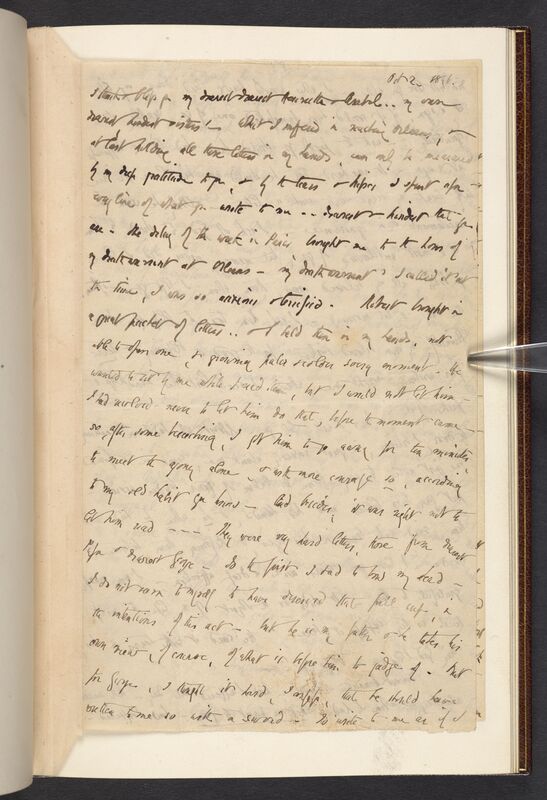 Oct 2. 1846.
I thank & bless you my dearest dearest Henrietta & Arabel .. my own
dearest kindest sisters! — What I suffered in reaching Orleans, &
at last holding all those letters in my hands, can only be measured
by my deep gratitude to you, & by the tears & kisses I spent upon
every line of what you wrote to me .. dearest & kindest that you
are. The delay of the week in Paris brought me to the hour of
my deathwarrant at Orleans — my 'deathwarrant' I called it at
the time, I was so anxious & terrified. Robert brought in
a great packet of letters .. & I held them in my hands, not
able to open one, & growing paler & colder every moment. He
wanted to sit by me while I read them, but I would not let him —
I had resolved never to let him do that, before the moment came —
so, after some beseeching, I got him to go away for ten minutes,
to meet the agony alone, & with more courage so, according
to my old habit you know — And besides, it was right not to
let him read — — — They were very hard letters, those from dearest
Papa & dearest George — To the first I had to bow my head —
I do not seem to myself to have deserved that full cup, in
the intentions of this act — but he is my father & he takes his
own view, of course, of what is before him to judge of. But
for George, I thought it hard, I confess, that he should have
written to me so with a sword — To write to me as if I